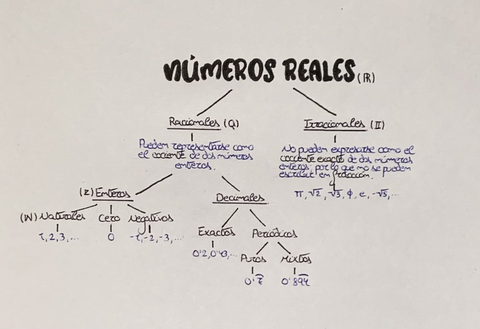 NÚMEROS REALES (R)
Racionales (Q)
Irracionales (II)
Pueden representarse como
el cociente de dos números
enteros.
No pueden expresarse como el
cociente exacto de dos números
enteros, por lo que no se pueden
escribir en fracción.
π, √2, √3, ϕ, e, -√5, ...
(Z) Enteros
Decimales
(N) Naturales
Cero
Negativos
1, 2, 3, ...
0
-1, -2, -3, ...
Exactos
Periódicos
0'2, 0'3, ...
Puros
Mixtos